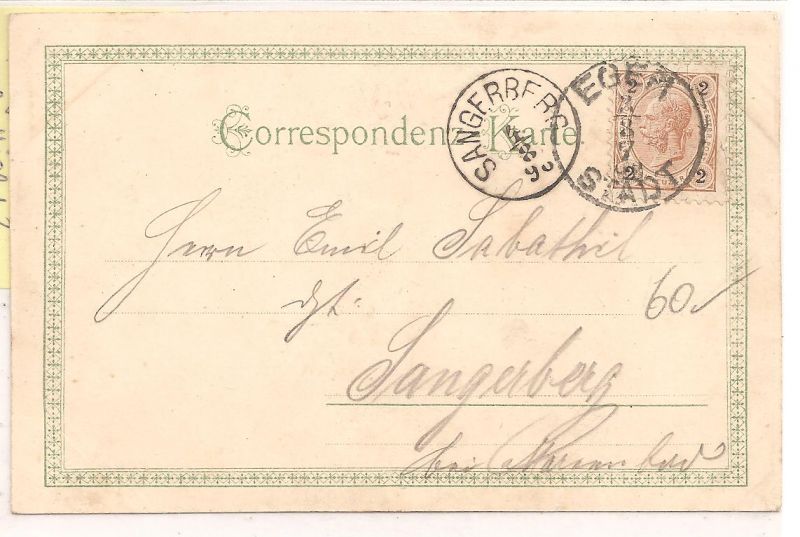 Correspondenz-Karte
SANGERBERG
EGER
STADT
2 2
2 2
Herrn Emil Sabathil
60
Sangerberg
bei Marienbad